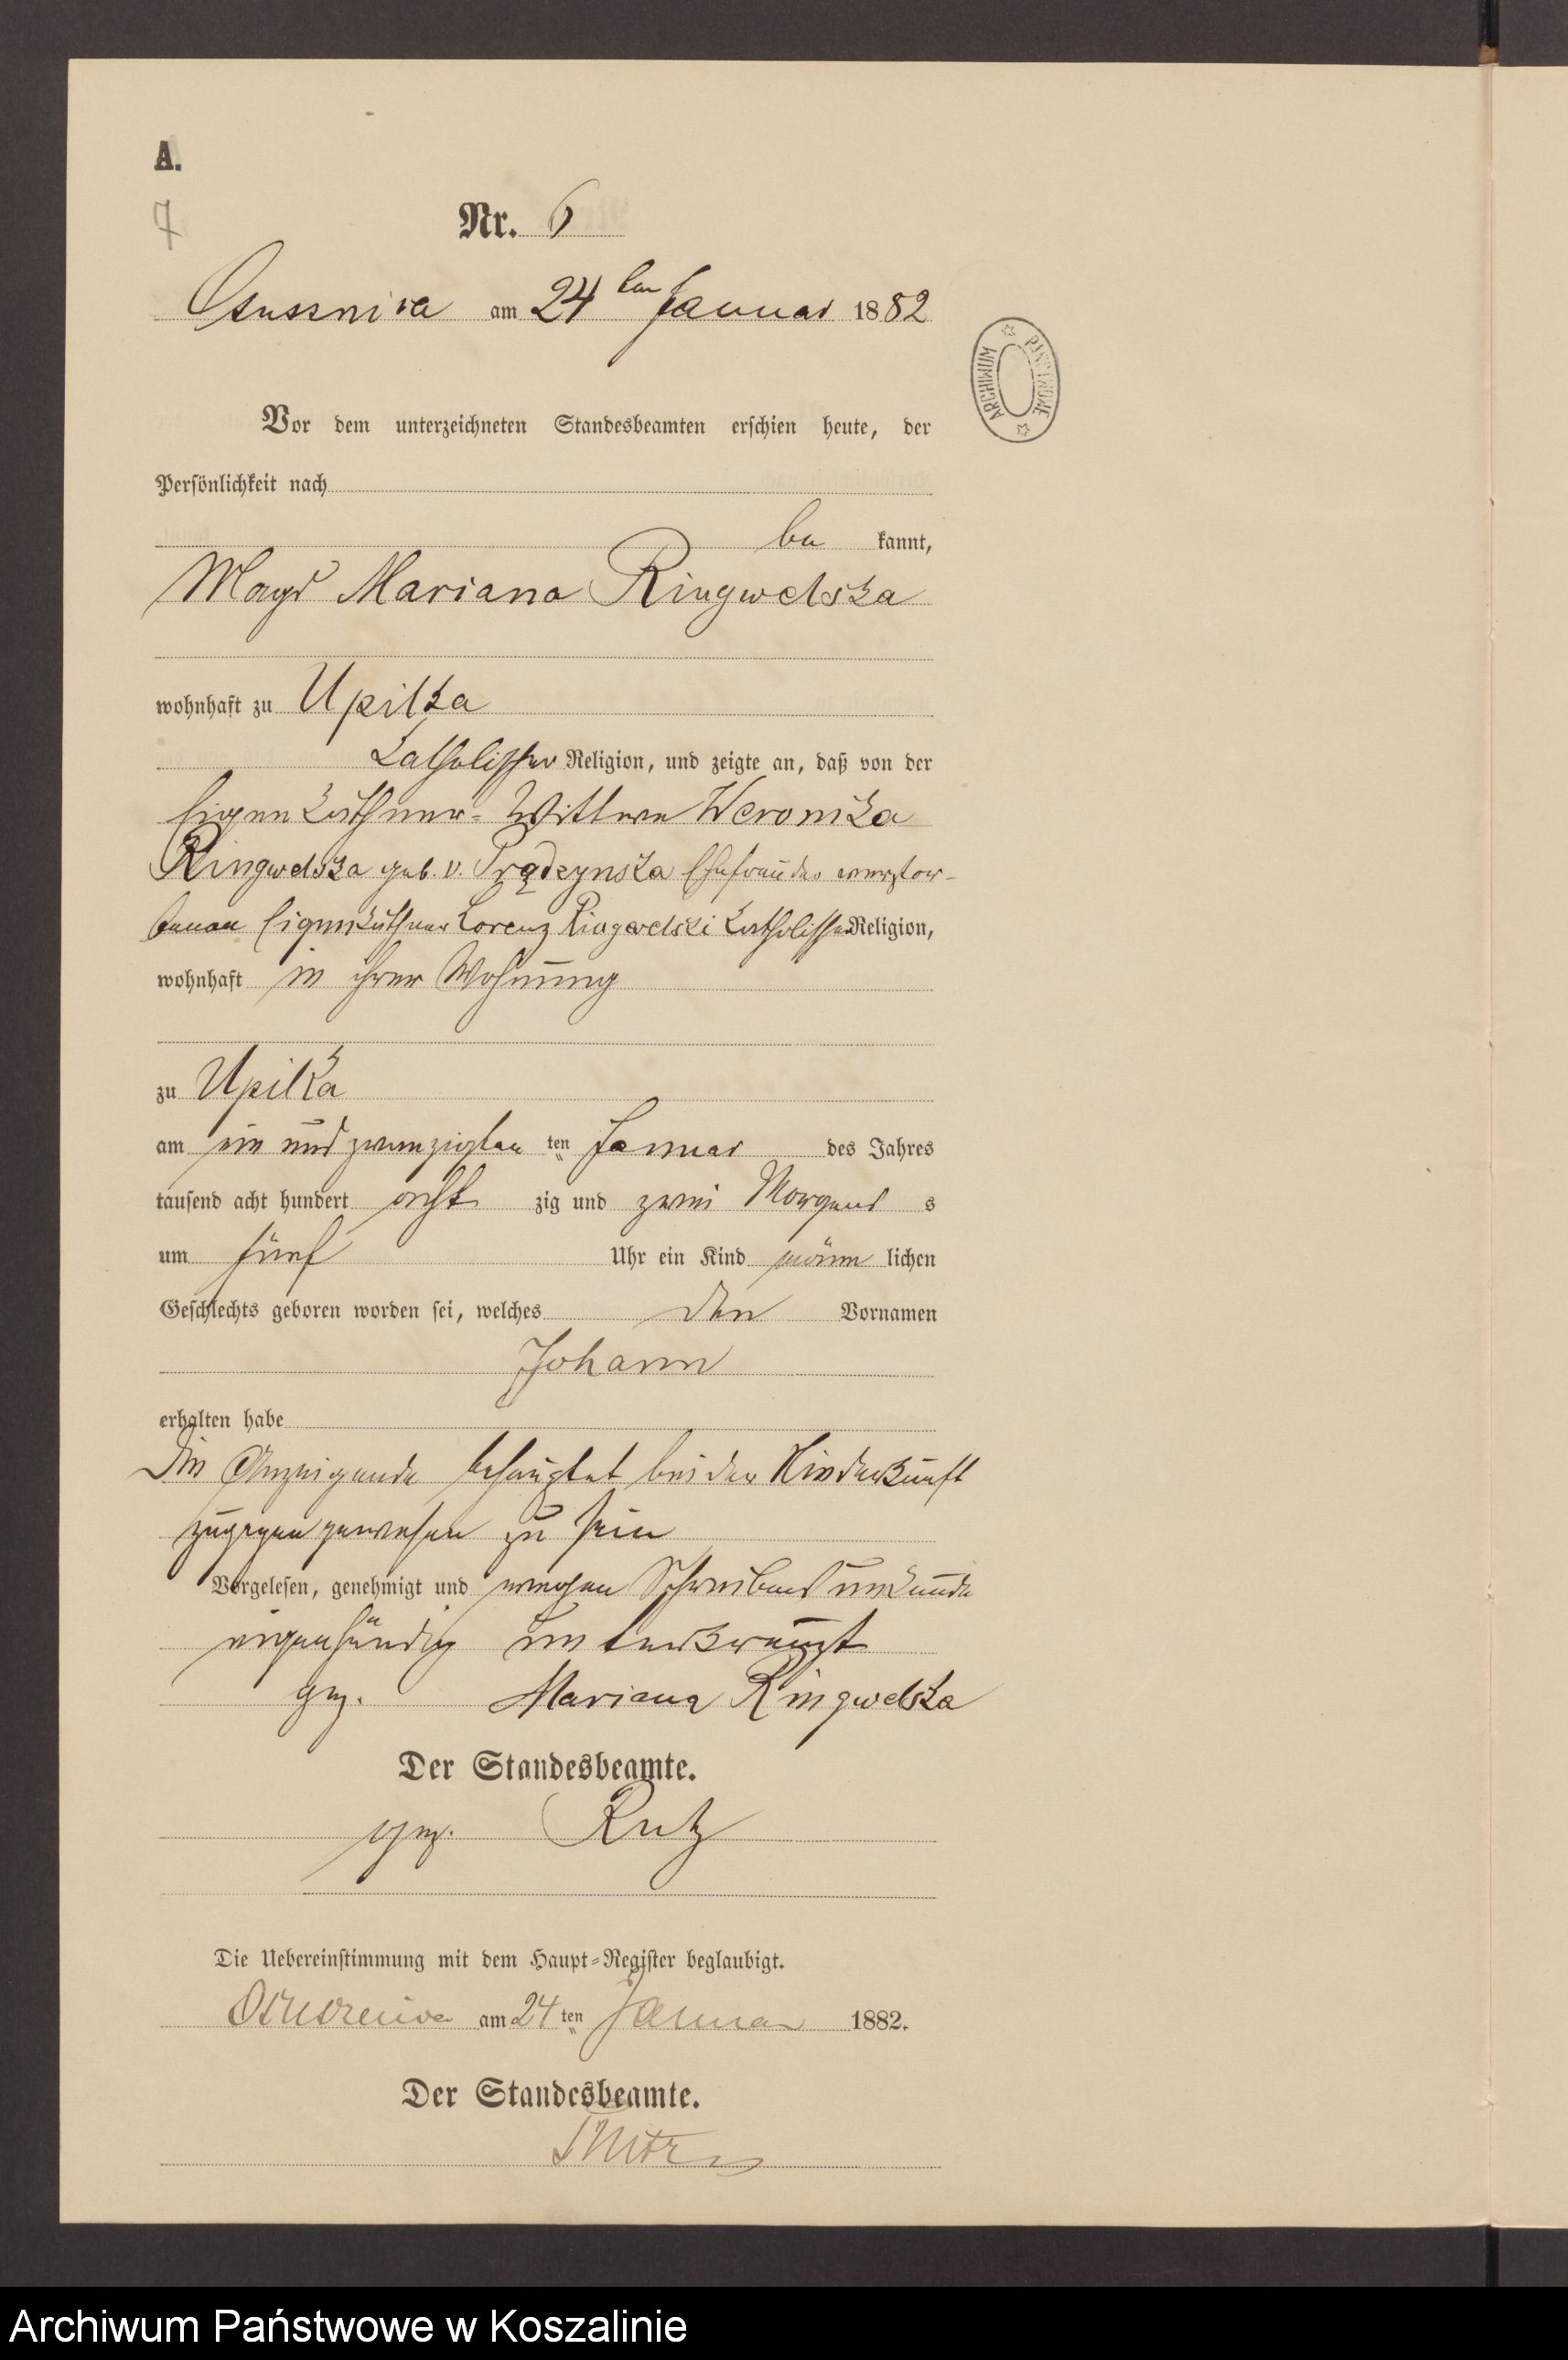 A.
7
Nr. 6
Ossusznica am 24 ten Januar 1882
ARCHIWUM PAŃSTWOWE
Vor dem unterzeichneten Standesbeamten erschien heute, der
Persönlichkeit nach
be kannt,
Magd Mariana Ringwelska
wohnhaft zu Upilka
katholischer Religion, und zeigte an, daß von der
Eigenkäthner-Wittwe Weronika
Ringwelska geb. v. Prądzynska Ehefrau des verstor-
benen Eigenkäthner Lorenz Ringwelski katholischer Religion,
wohnhaft in ihrer Wohnung
zu Upilka
am ein und zwanzigsten ten Januar des Jahres
tausend acht hundert acht zig und zwei Morgens s
um fünf Uhr ein Kind männ lichen
Geschlechts geboren worden sei, welches den Vornamen
Johann
erhalten habe
Die Anzeigende behauptet bei der Niederkunft
zugegen gewesen zu sein
Vorgelesen, genehmigt und wegen Schreibens unkunde
eigenhändig unterkreuzt
gez. Mariana Ringwelska
Der Standesbeamte.
gez. Rutz
Die Uebereinstimmung mit dem Haupt-Register beglaubigt.
am 24 ten Januar 1882.
Der Standesbeamte.
Archiwum Państwowe w Koszalinie